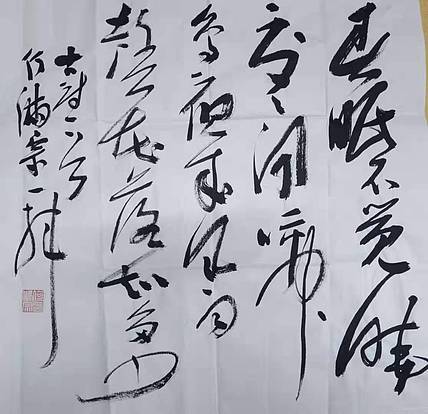 春眠不觉晓
处々闻啼
鸟夜来风雨
声花落知多少
古诗一首
何满宗